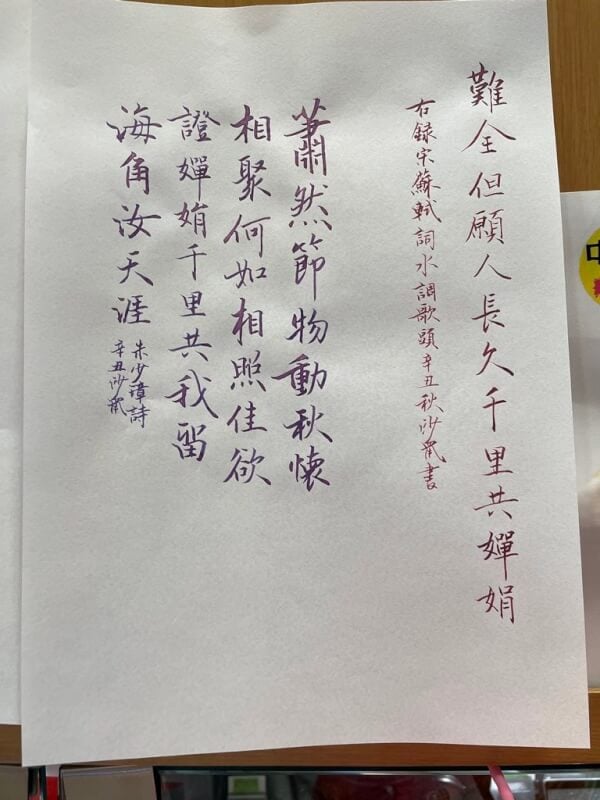 難全但願人長久千里共嬋娟
右録宋蘇軾詞水調歌頭辛丑秋沙鷗書
蕭然節物動秋懷
相聚何如相照佳欲
證嬋娟千里共我留
海角汝天涯
朱少璋詩
辛丑沙鷗
中